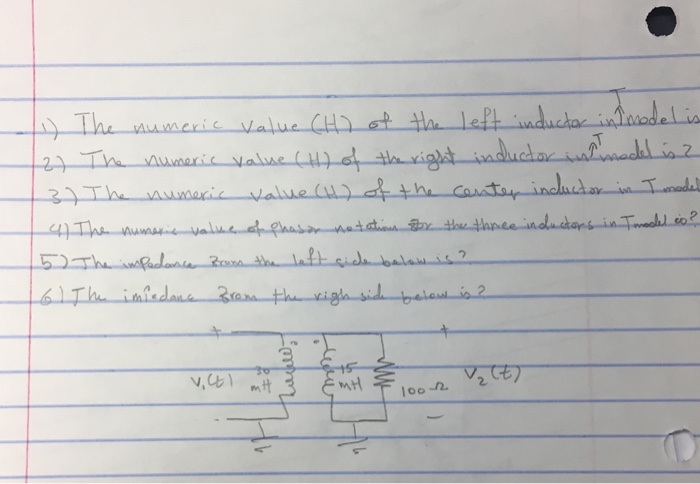 1) The numeric value (H) of the left inductor in T model is
2) The numeric value (H) of the right inductor in T model is?
3) The numeric value (H) of the center inductor in T model
4) The numeric value of phasor notation for the three inductors in T model is?
5) The impedance from the left side below is?
6) The impedanc from the righ side below is?
+ +
V₁(t) 30 mH 15 mH 100 Ω V₂(t)
- -